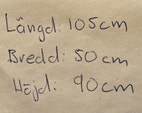 Längd: 105cm
Bredd: 50cm
Höjd: 90cm